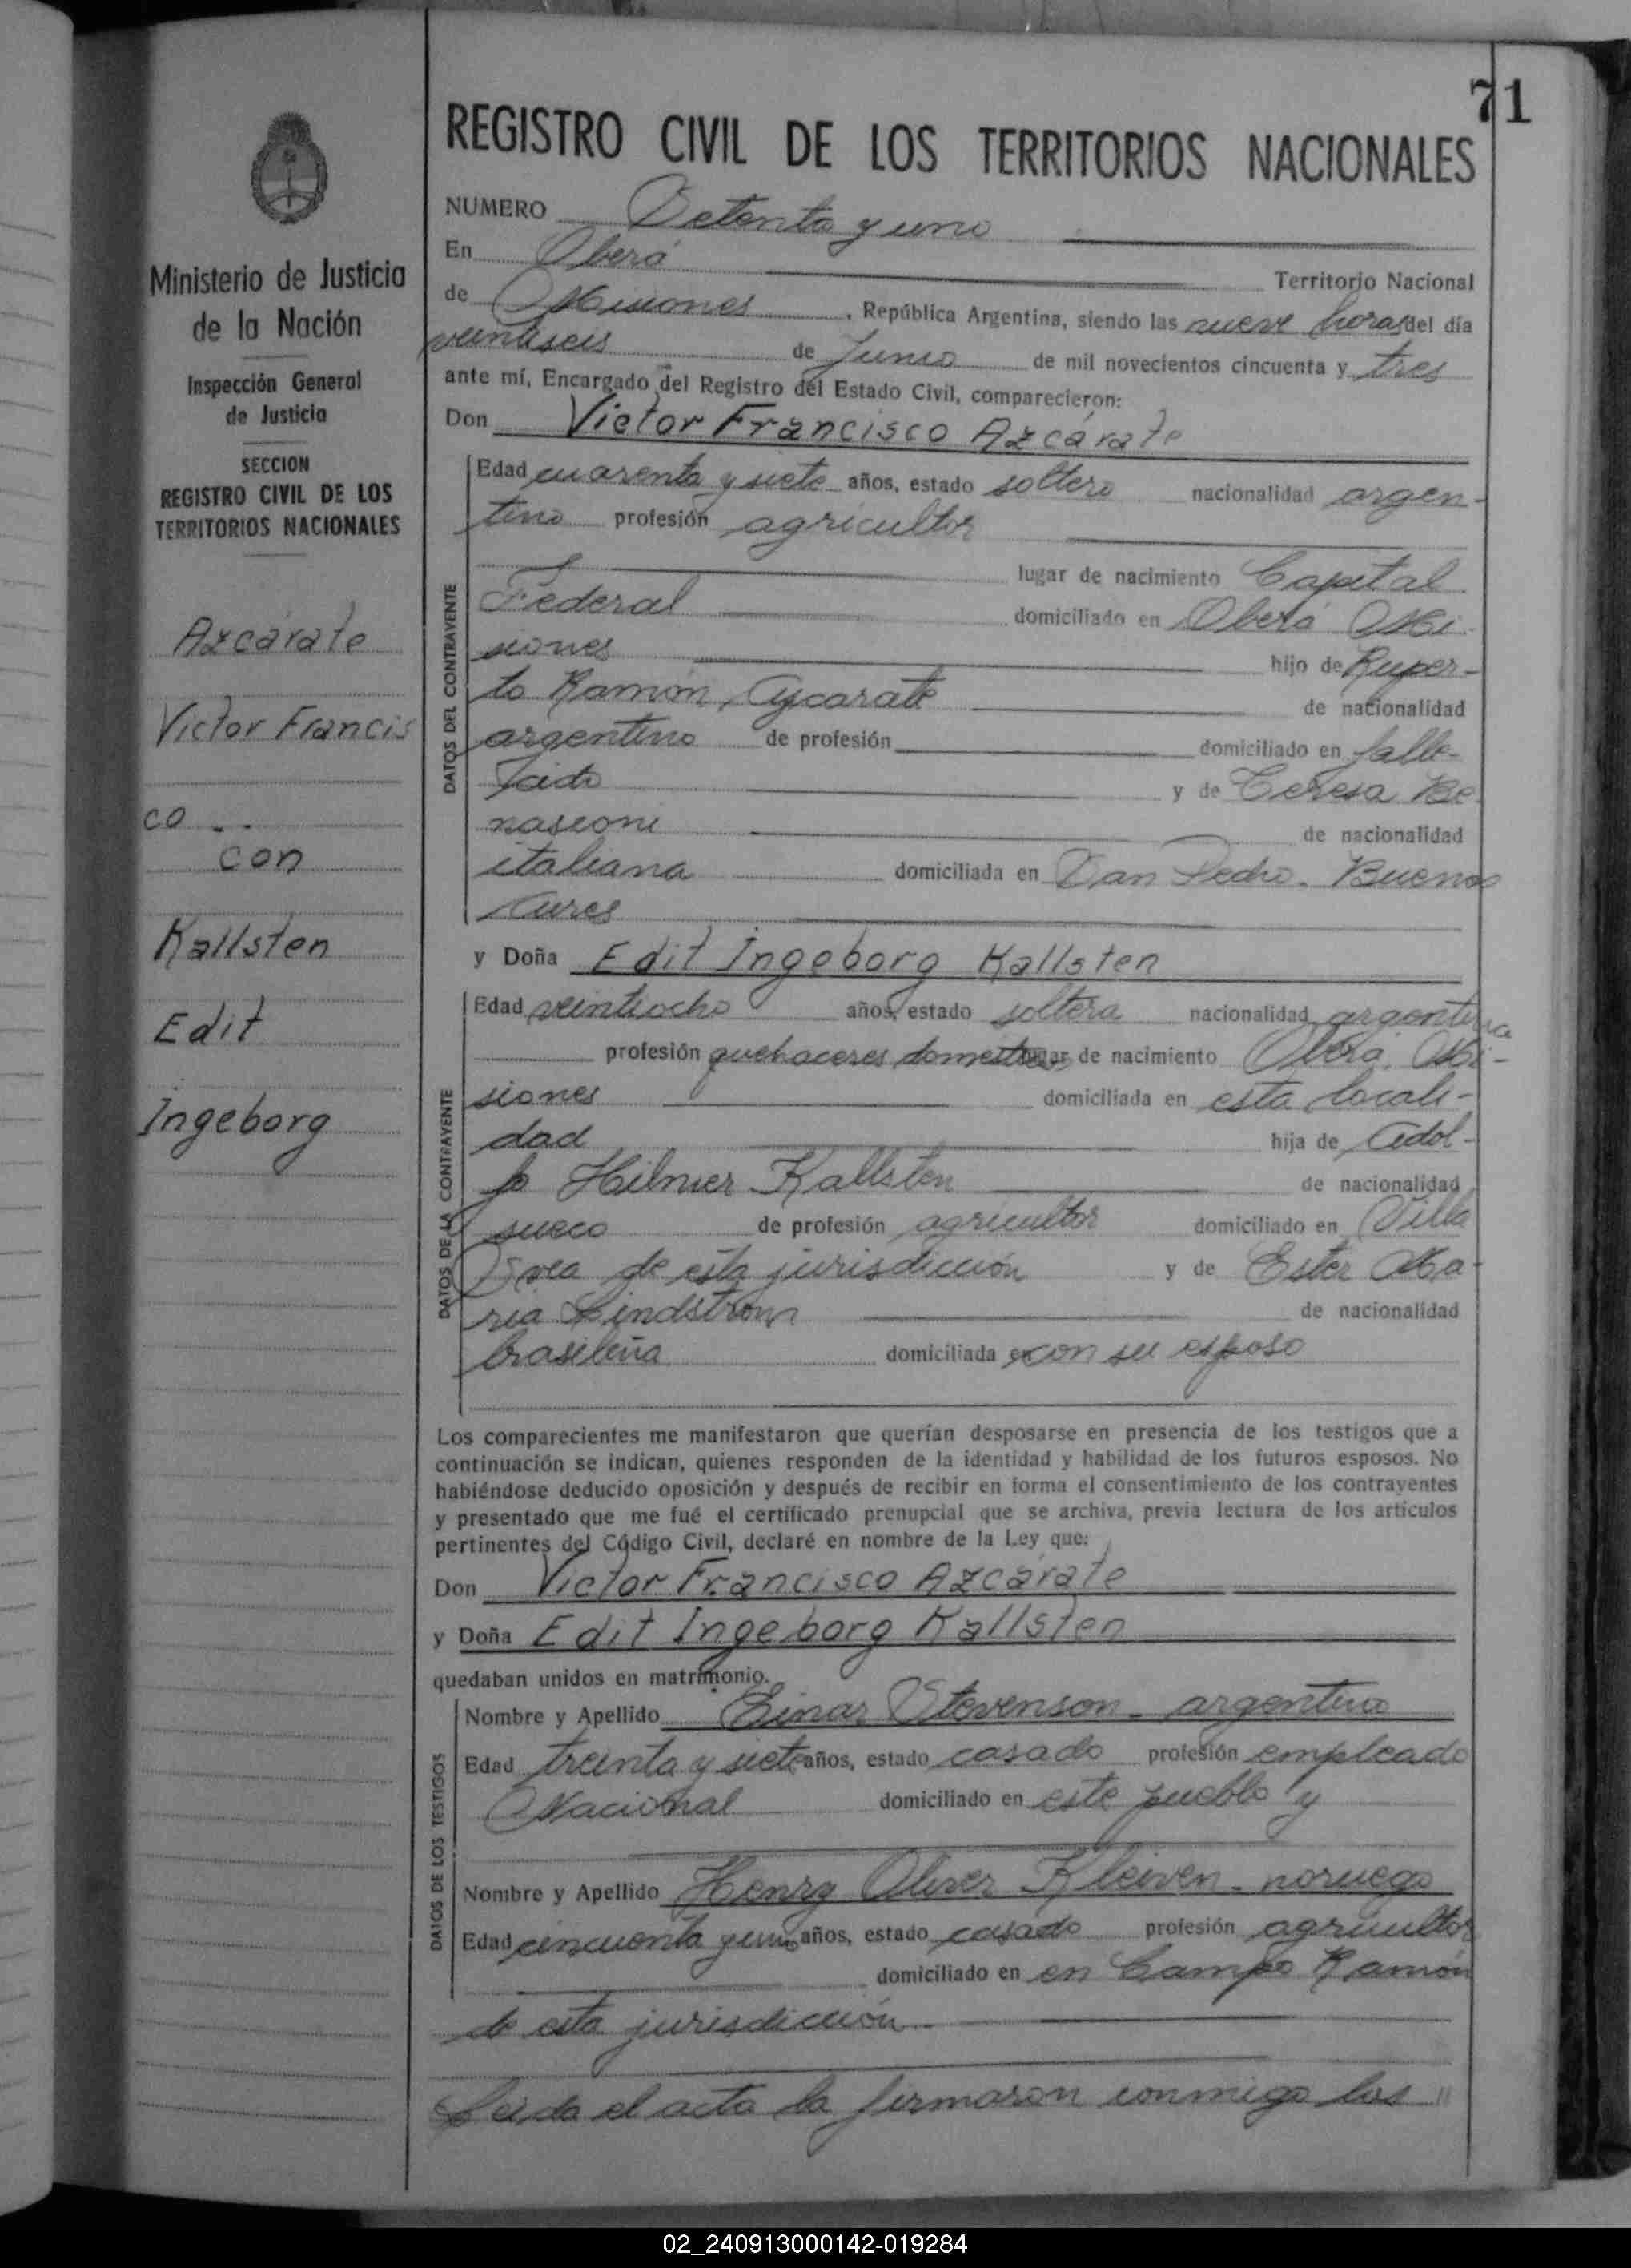 71
REGISTRO CIVIL DE LOS TERRITORIOS NACIONALES
NUMERO Setenta y uno
En Oberá Territorio Nacional
de Misiones, República Argentina, siendo las nueve horas del día
veintiseis de Junio de mil novecientos cincuenta y tres
ante mí, Encargado del Registro del Estado Civil, comparecieron:
Don Victor Francisco Azcárate
DATOS DEL CONTRAYENTE
Edad cuarenta y siete años, estado soltero nacionalidad argen-
tino profesión agricultor
lugar de nacimiento Capital
Federal domiciliado en Oberá Mi-
siones hijo de Ruper-
to Ramón Azcarate de nacionalidad
argentino de profesión domiciliado en falle-
cido y de Teresa Be
nascone de nacionalidad
italiana domiciliada en San Pedro. Buenos
Aires
y Doña Edit Ingeborg Kallsten
DATOS DE LA CONTRAYENTE
Edad veintiocho años, estado soltera nacionalidad argentina
profesión quehaceres domesticos lugar de nacimiento Oberá Mi-
siones domiciliada en esta locali-
dad hija de Adol-
fo Hilmer Kallsten de nacionalidad
sueco de profesión agricultor domiciliado en Villa
Svea de esta jurisdicción y de Ester Ma-
ria Lindstrom de nacionalidad
brasileña domiciliada en con su esposo
Los comparecientes me manifestaron que querían desposarse en presencia de los testigos que a
continuación se indican, quienes responden de la identidad y habilidad de los futuros esposos. No
habiéndose deducido oposición y después de recibir en forma el consentimiento de los contrayentes
y presentado que me fué el certificado prenupcial que se archiva, previa lectura de los artículos
pertinentes del Código Civil, declaré en nombre de la Ley que:
Don Victor Francisco Azcárate
y Doña Edit Ingeborg Kallsten
quedaban unidos en matrimonio.
DATOS DE LOS TESTIGOS
Nombre y Apellido Einar Stevenson - argentino
Edad treinta y siete años, estado casado profesión empleado
Nacional domiciliado en este pueblo y
Nombre y Apellido Henry Oliver Kleiven - noruego
Edad cincuenta y uno años, estado casado profesión agricultor
domiciliado en en Campo Ramón
de esta jurisdicción
Leida el acta la firmaron conmigo los "
Ministerio de Justicia
de la Nación
Inspección General
de Justicia
SECCION
REGISTRO CIVIL DE LOS
TERRITORIOS NACIONALES
Azcárate
Victor Francis
co
con
Kallsten
Edit
Ingeborg
02_240913000142-019284